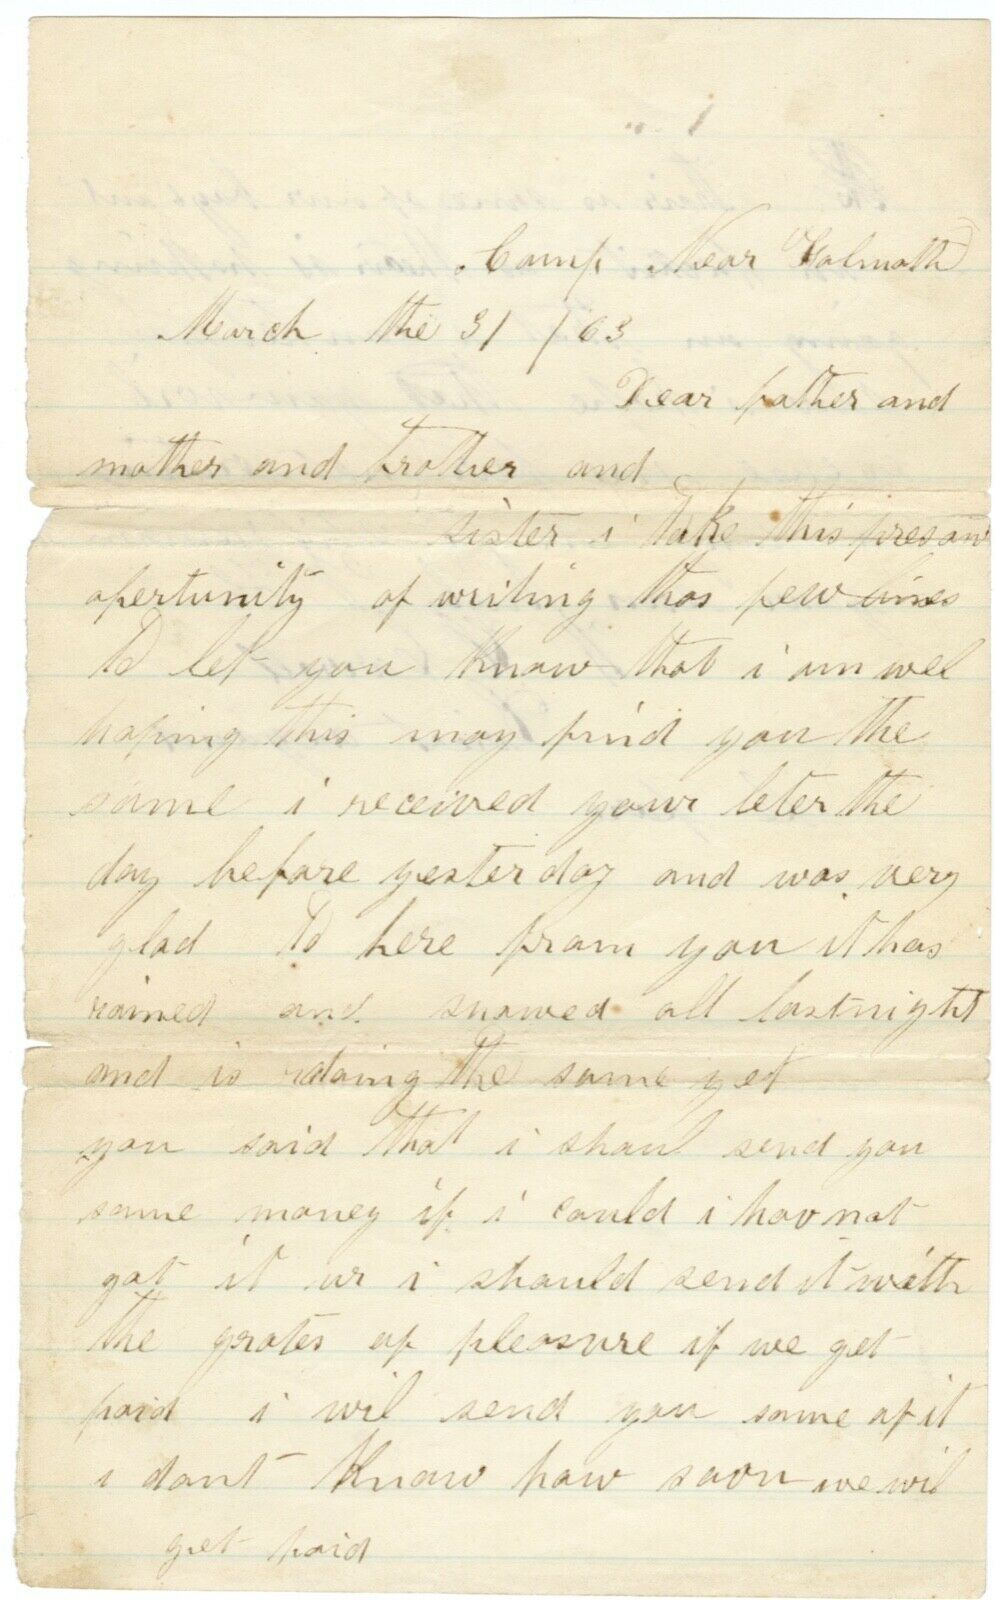 Camp Near Falmoth
March the 31 / 63
Dear father and
mother and brother and
sister i take this presant
opertunity of writing thos few lines
to let you know that i am wel
hoping this may find you the
same i received your leter the
day before yesterday and was very
glad to here from you it has
rained and snowed all last night
and is doing the same yet
you said that i shoul send you
some money if i could i hav not
got it ur i should send it with
the grates of pleasure if we get
paid i wil send you some of it
i dont know how soon we wil
get paid